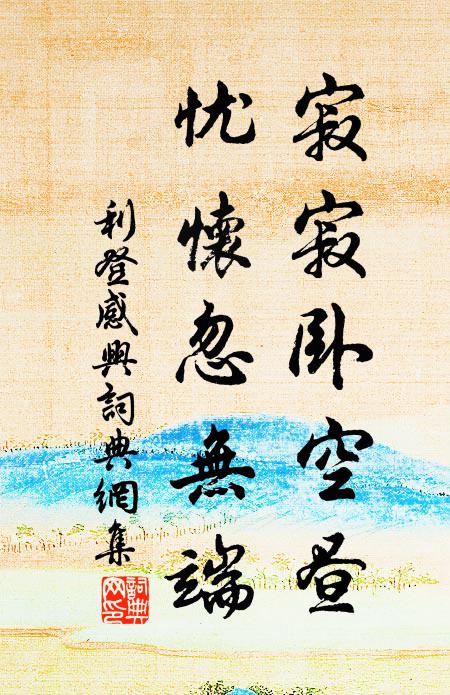 寂寂卧空昼
忧懷忽無端
利登感興詞典網集
詞典